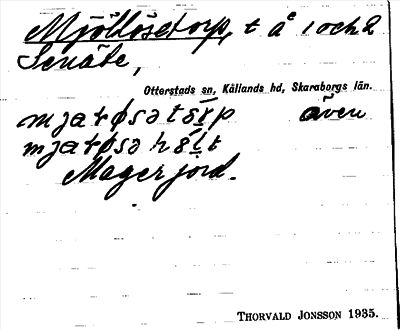 Mjölkösetorp, t å 1 och 2
Senäte,
Otterstads sn, Kållands hd, Skaraborgs län.
mjaɫøsətɷ́r̥p även
mjaɫøsə hɷ́l̥t
Mager jord.
THORVALD JONSSON 1935.